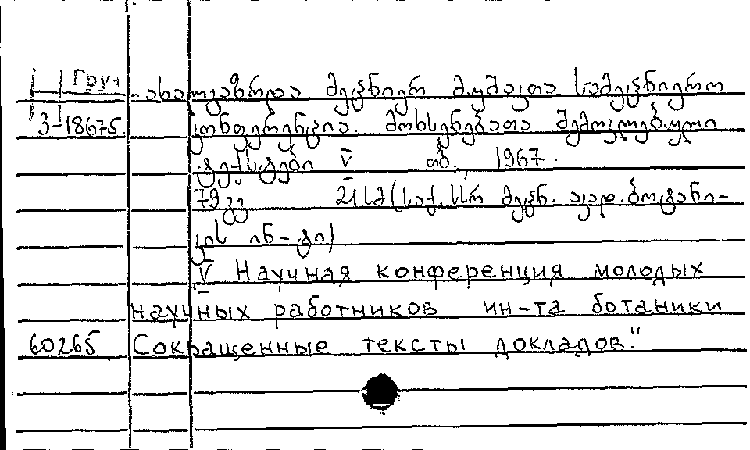 Груз
ახალგაზრდა მეცნიერ მუშაკთა სამეცნიერო
3-18675 კონფერენცია. მოხსენებათა შემოკლებული
ტექსტები V თბ., 1967.
79 გვ 21 სმ (საქ. სსრ მეცნ. აკად. ბოტანი-
კის ინ-ტი)
V Научная конференция молодых
научных работников ин-та ботаники
60265 Сокращенные тексты докладов."